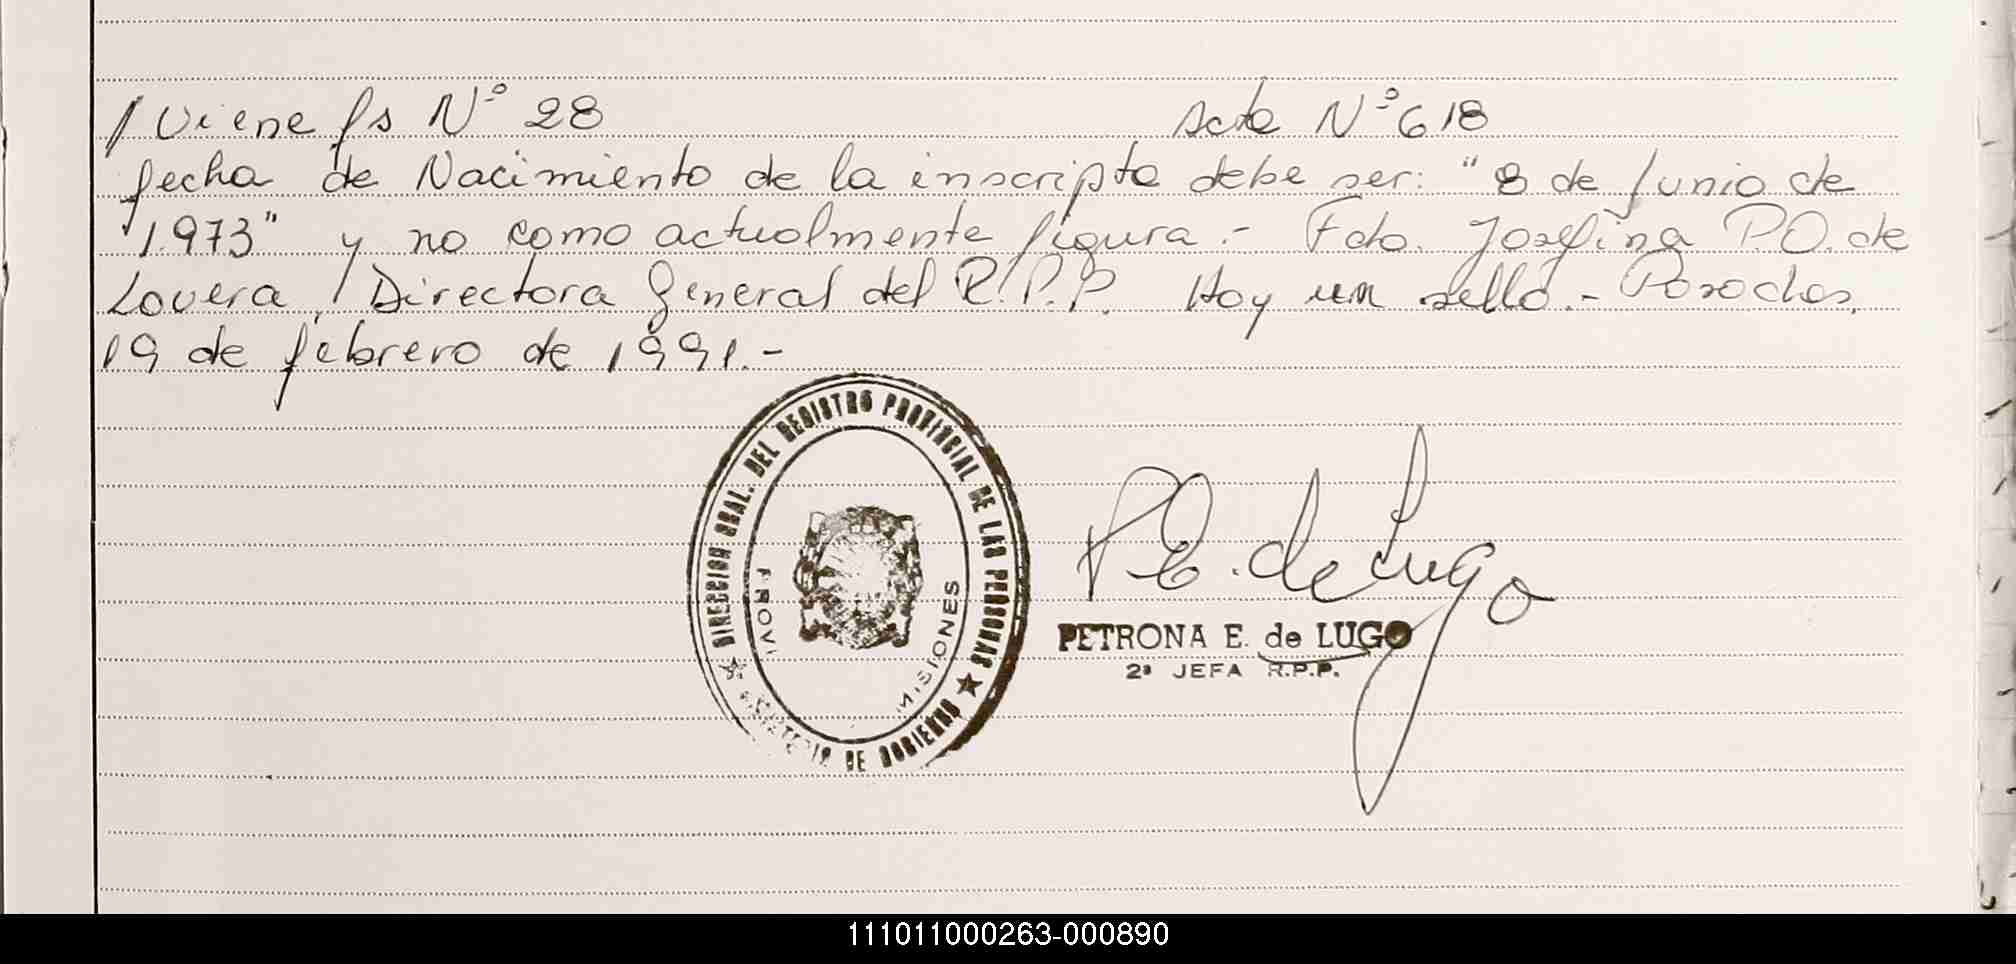 / Viene fs Nº 28 Acta Nº 618
fecha de Nacimiento de la inscripta debe ser: "8 de Junio de
1.973" y no como actualmente figura.- Fdo. Josefina P.O. de
Lovera, Directora General del R.P.P. Hay un sello.- Posadas,
19 de febrero de 1991.-
DIRECCION GRAL. DEL REGISTRO PROVINCIAL DE LAS PERSONAS
DE GOBIERNO
MISIONES
P.E. de Lugo
PETRONA E. de LUGO
2ª JEFA R.P.P.
111011000263-000890